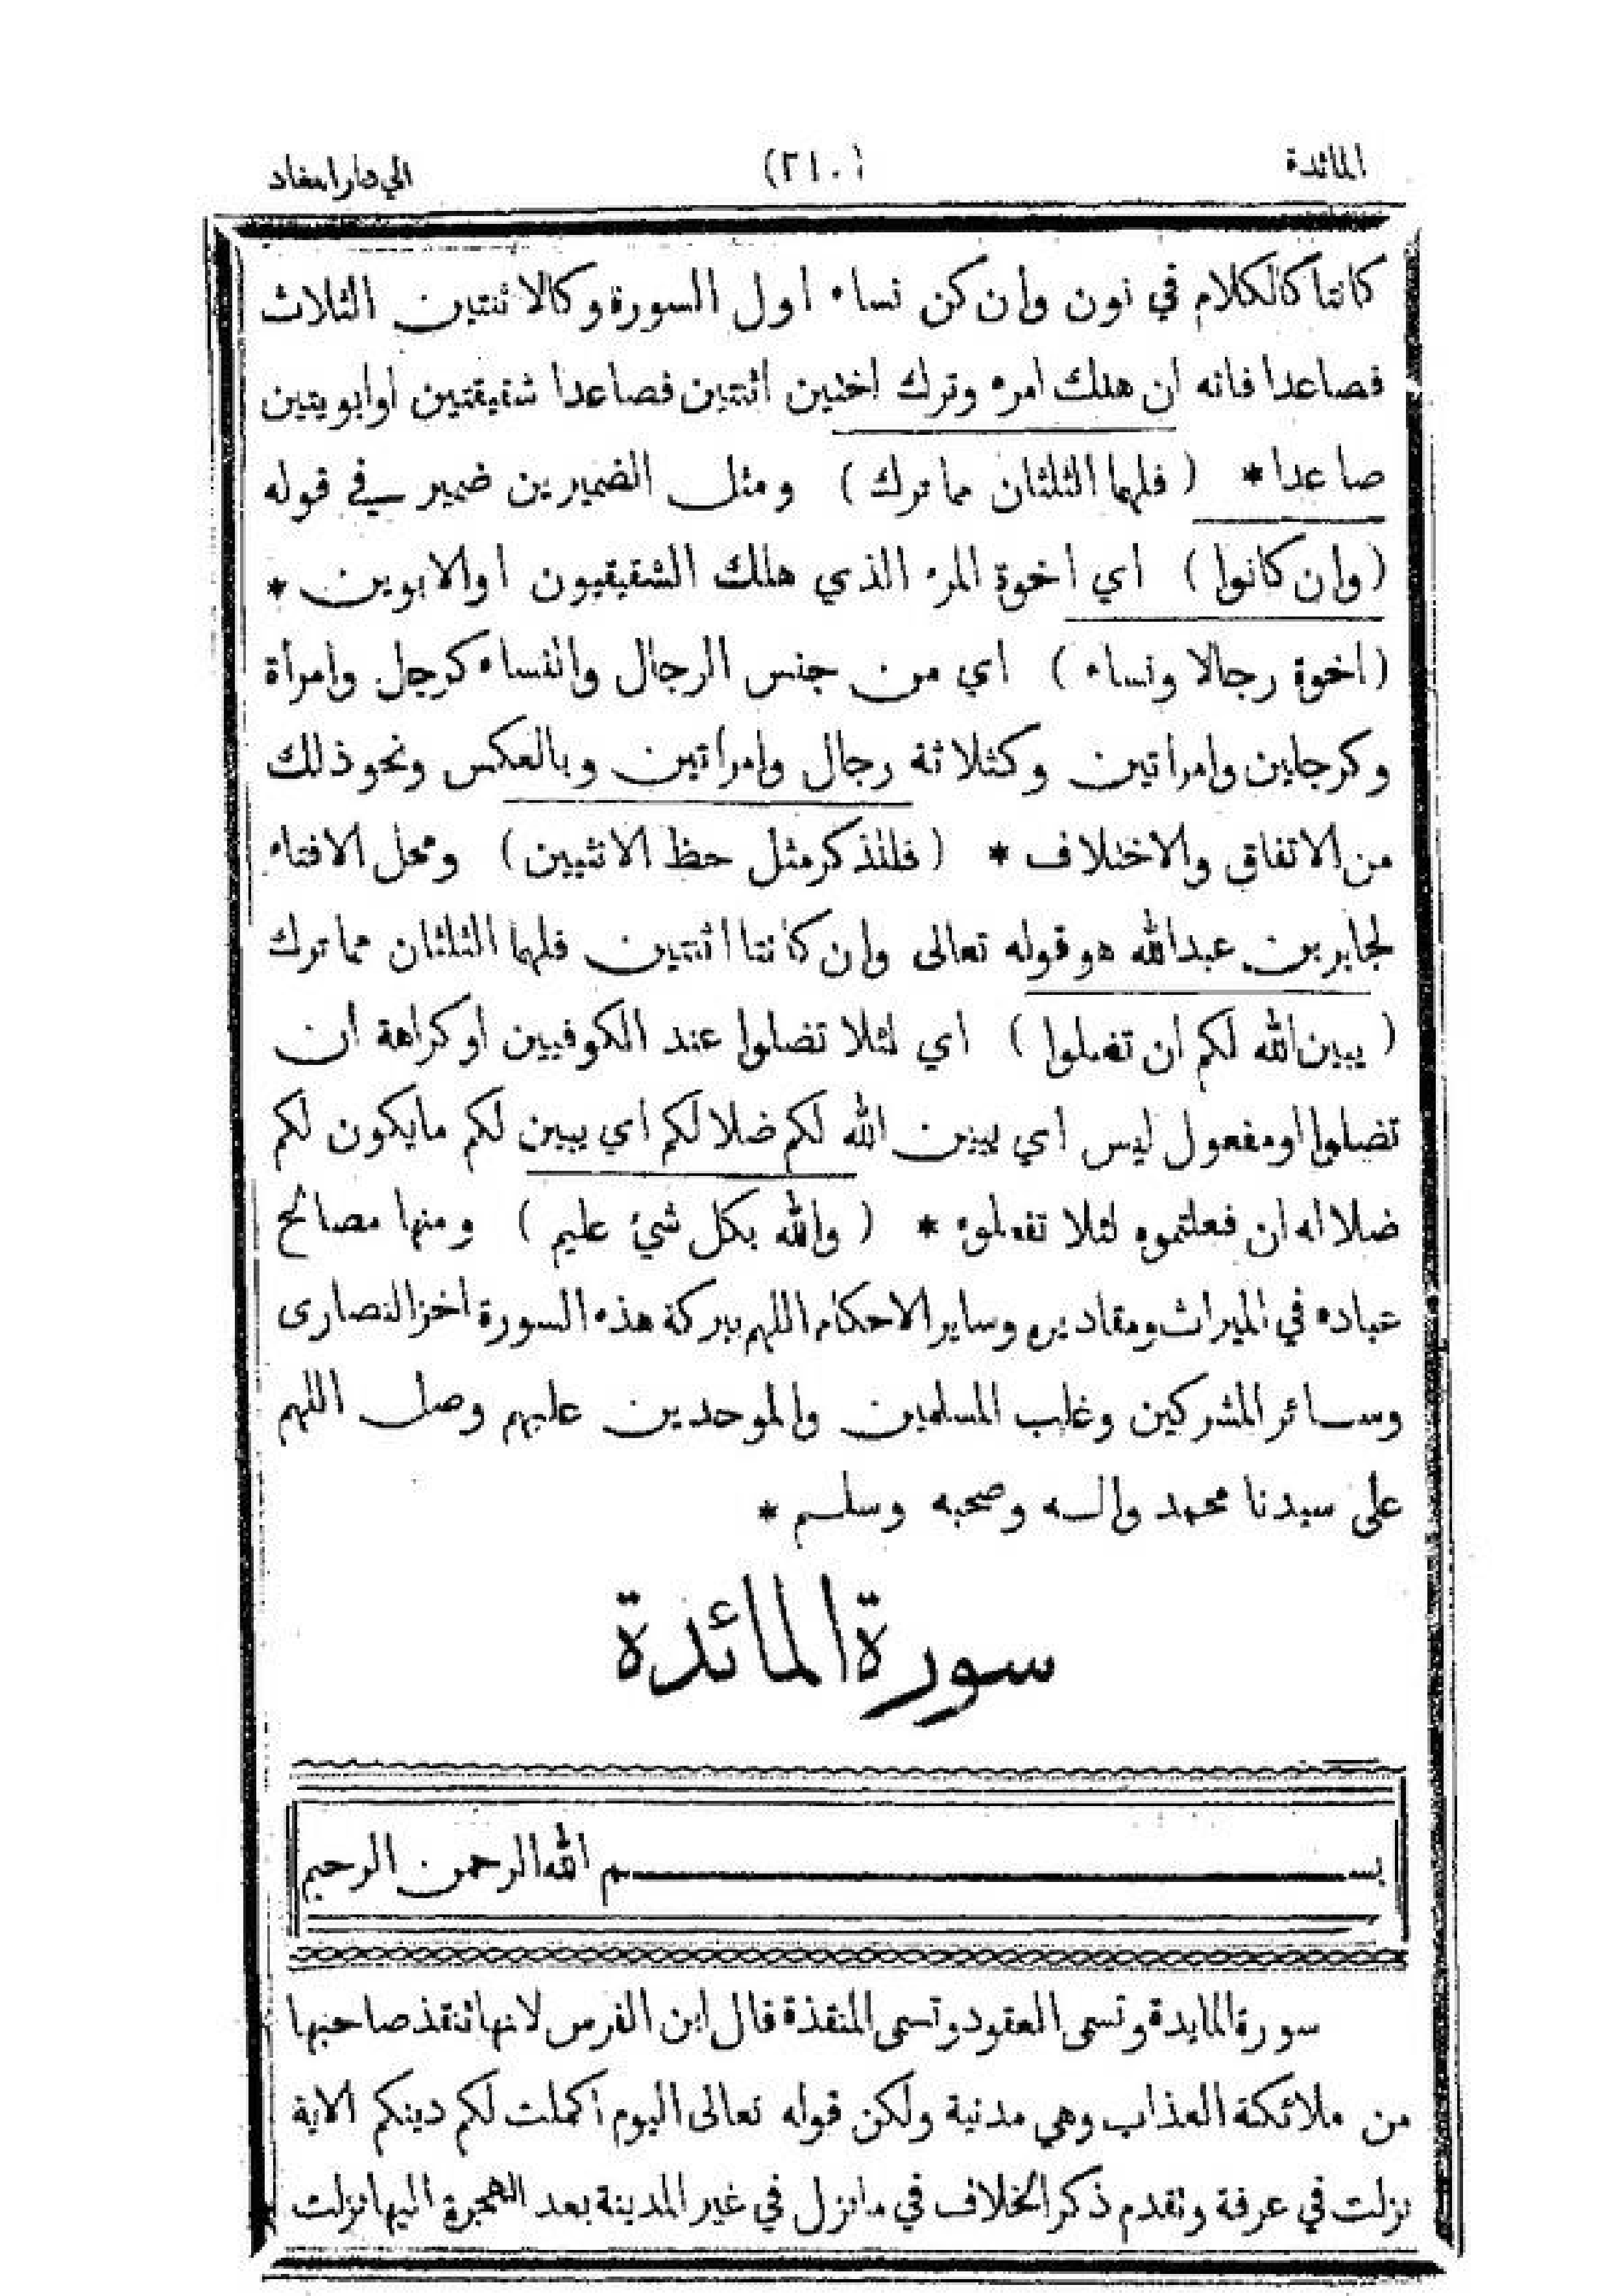 المائدة (٢١٠) الي دار المعاد
كانتا كالكلام في نون وان كن نساء اول السورة وكالاثنتين الثلاث
فصاعدا فانه ان هلك امرء وترك اختين اثنتين فصاعدا شقيقتين او ابويتين
صاعدا * (فلهما الثلثان مما ترك) ومثل الضميرين ضمير في قوله
(وان كانوا) اي اخوة المرء الذي هلك الشقيقيون او الابوين *
(اخوة رجالا ونساء) اي من جنس الرجال والنساء كرجل وامرأة
وكرجلين وامرأتين وكثلاثة رجال وامراتين وبالعكس ونحو ذلك
من الاتفاق والاختلاف * (فللذكر مثل حظ الانثيين) ومحل الافتاء
لجابر بن عبدالله هو قوله تعالى وان كانتا اثنتين فلهما الثلثان مما ترك
(يبين الله لكم ان تضلوا) اي لئلا تضلوا عند الكوفيين او كراهة ان
تضلوا او مفعول ليس اي يبين الله لكم ضلالكم اي يبين لكم مايكون لكم
ضلاله ان فعلتموه لئلا تفعلوه * (والله بكل شيء عليم) ومنها مصالح
عباده في الميراث ومقاديره وساير الاحكام اللهم ببركة هذه السورة اخز النصارى
وسائر المشركين وغلب المسلمين والموحدين عليهم وصل اللهم
على سيدنا محمد واله وصحبه وسلم *
سورة المائدة
بسم الله الرحمن الرحيم
سورة المايدة وتسمى العقود وتسمى المنقذة قال ابن الفرس لانها تنقذ صاحبها
من ملائكة العذاب وهي مدنية ولكن قوله تعالى اليوم اكملت لكم دينكم الاية
نزلت في عرفة وتقدم ذكر الخلاف في مانزل في غير المدينة بعد الهجرة اليها نزلت